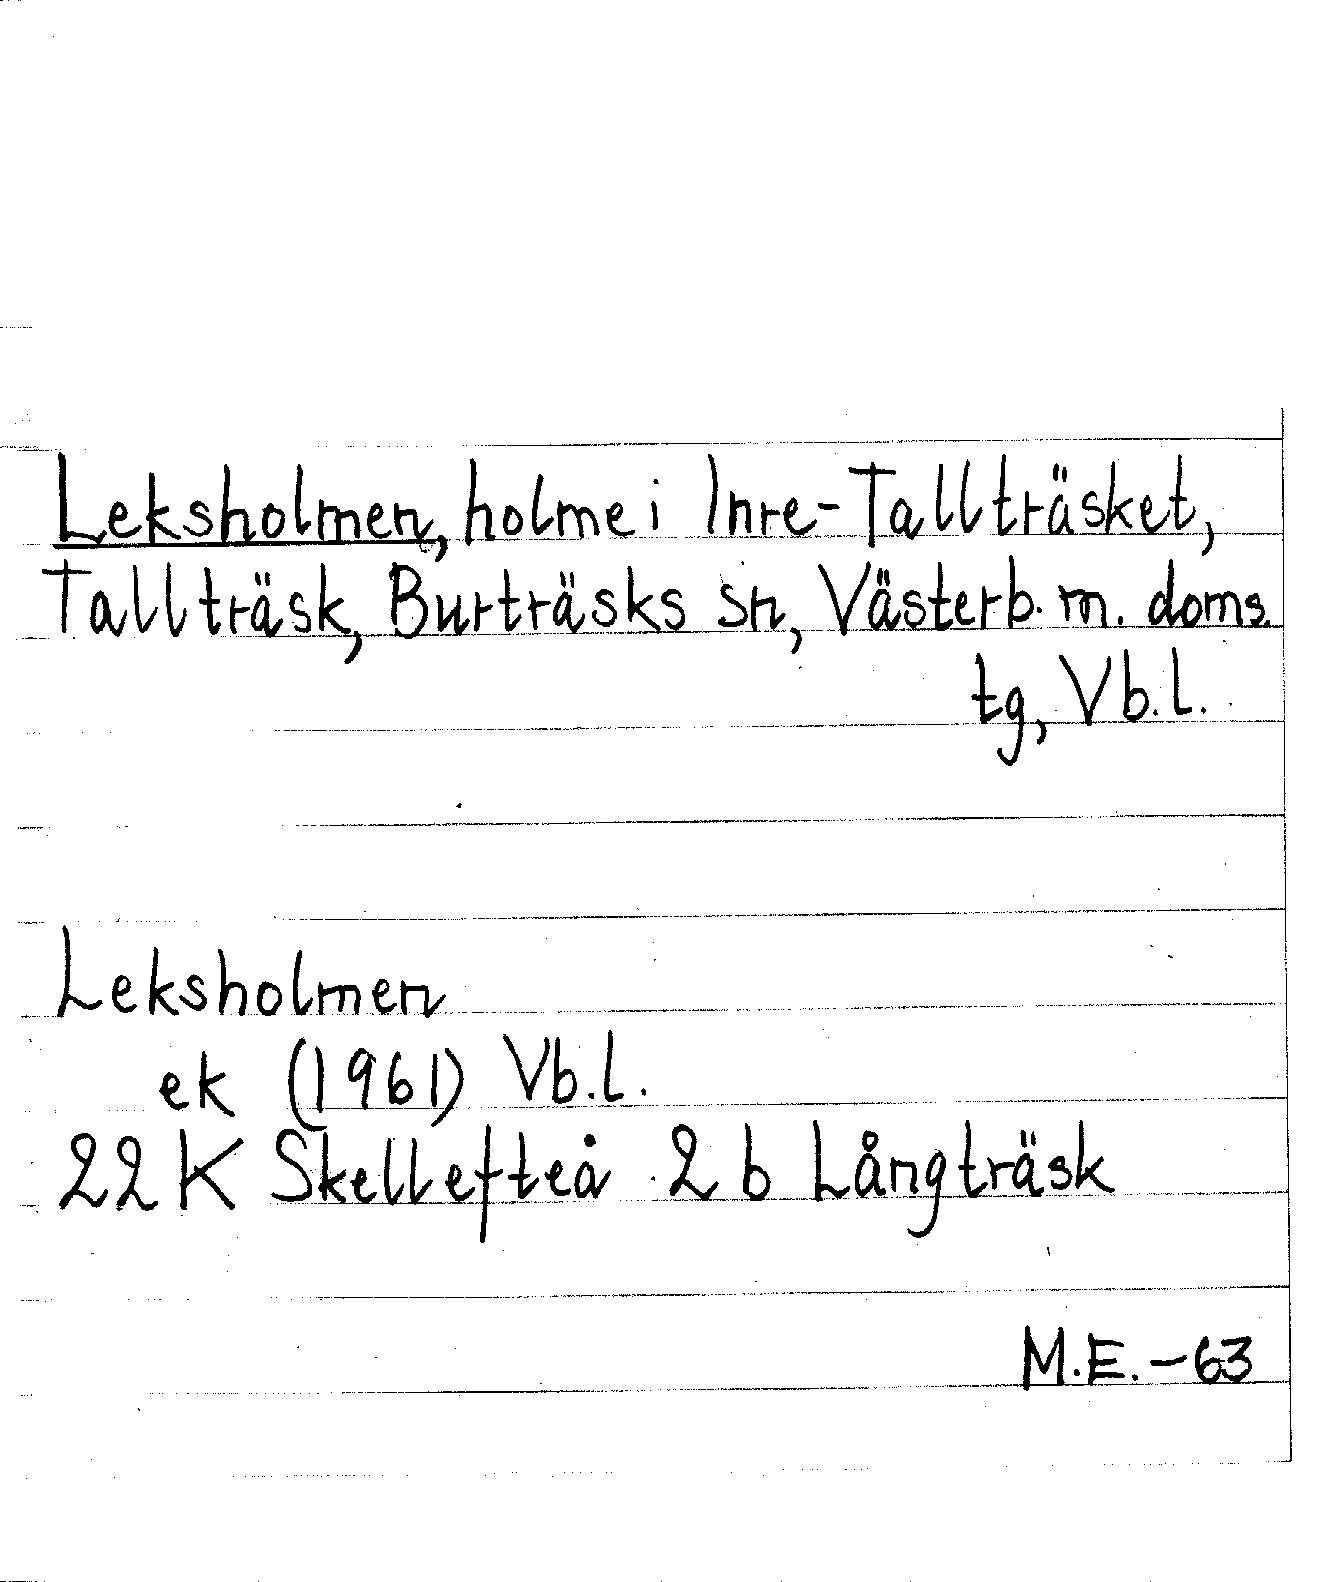 Leksholmen, holme i Inre-Tallträsket,
Tallträsk, Burträsks sn, Västerb. m. doms.
tg, Vb.l.
Leksholmen
ek (1961) Vb.l.
22 K Skellefteå 2 b Långträsk
M.E. -63